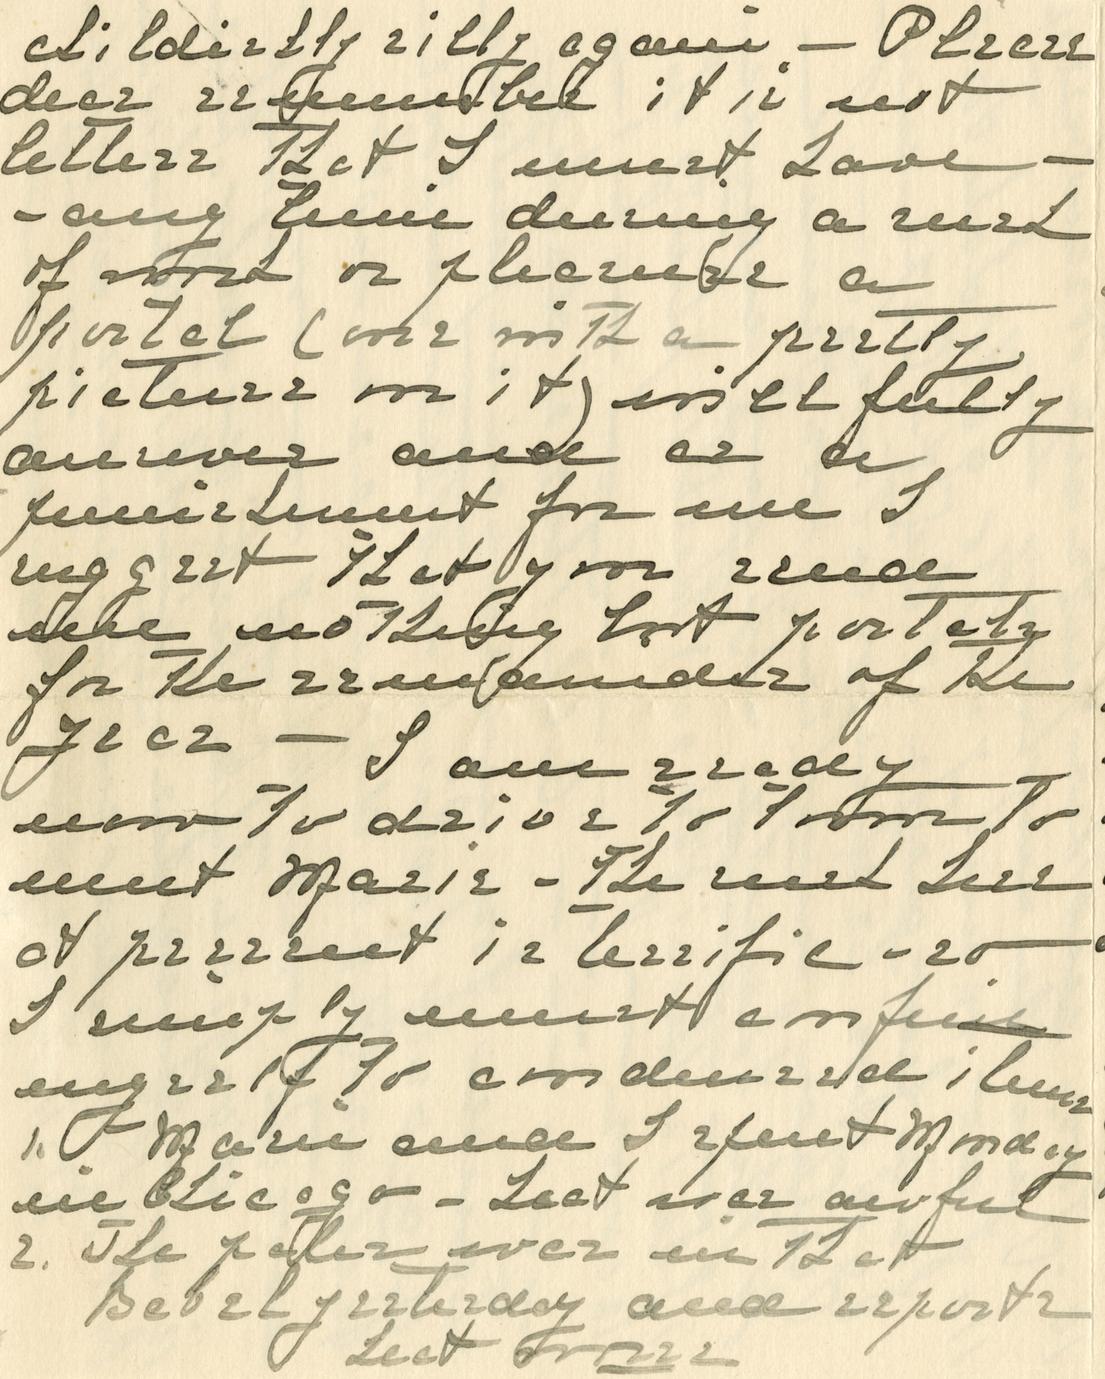 childishly silly again — Please
dear remember it is not
letters that I must have —
- any time during a rush
of work or pleasure a
postal (one with a pretty
picture on it) will fully
answer and as a
punishment for me I
suggest that you send
me nothing but postals
for the remainder of the
year — I am ready
now to drive to town to
meet Marie - The rush here
at present is terrific - so
I simply must confine
myself to condensed items
1. Marie and I spent Monday
in Chicago - heat was awful
2. The pater was in that
Babel yesterday and reports
heat worse